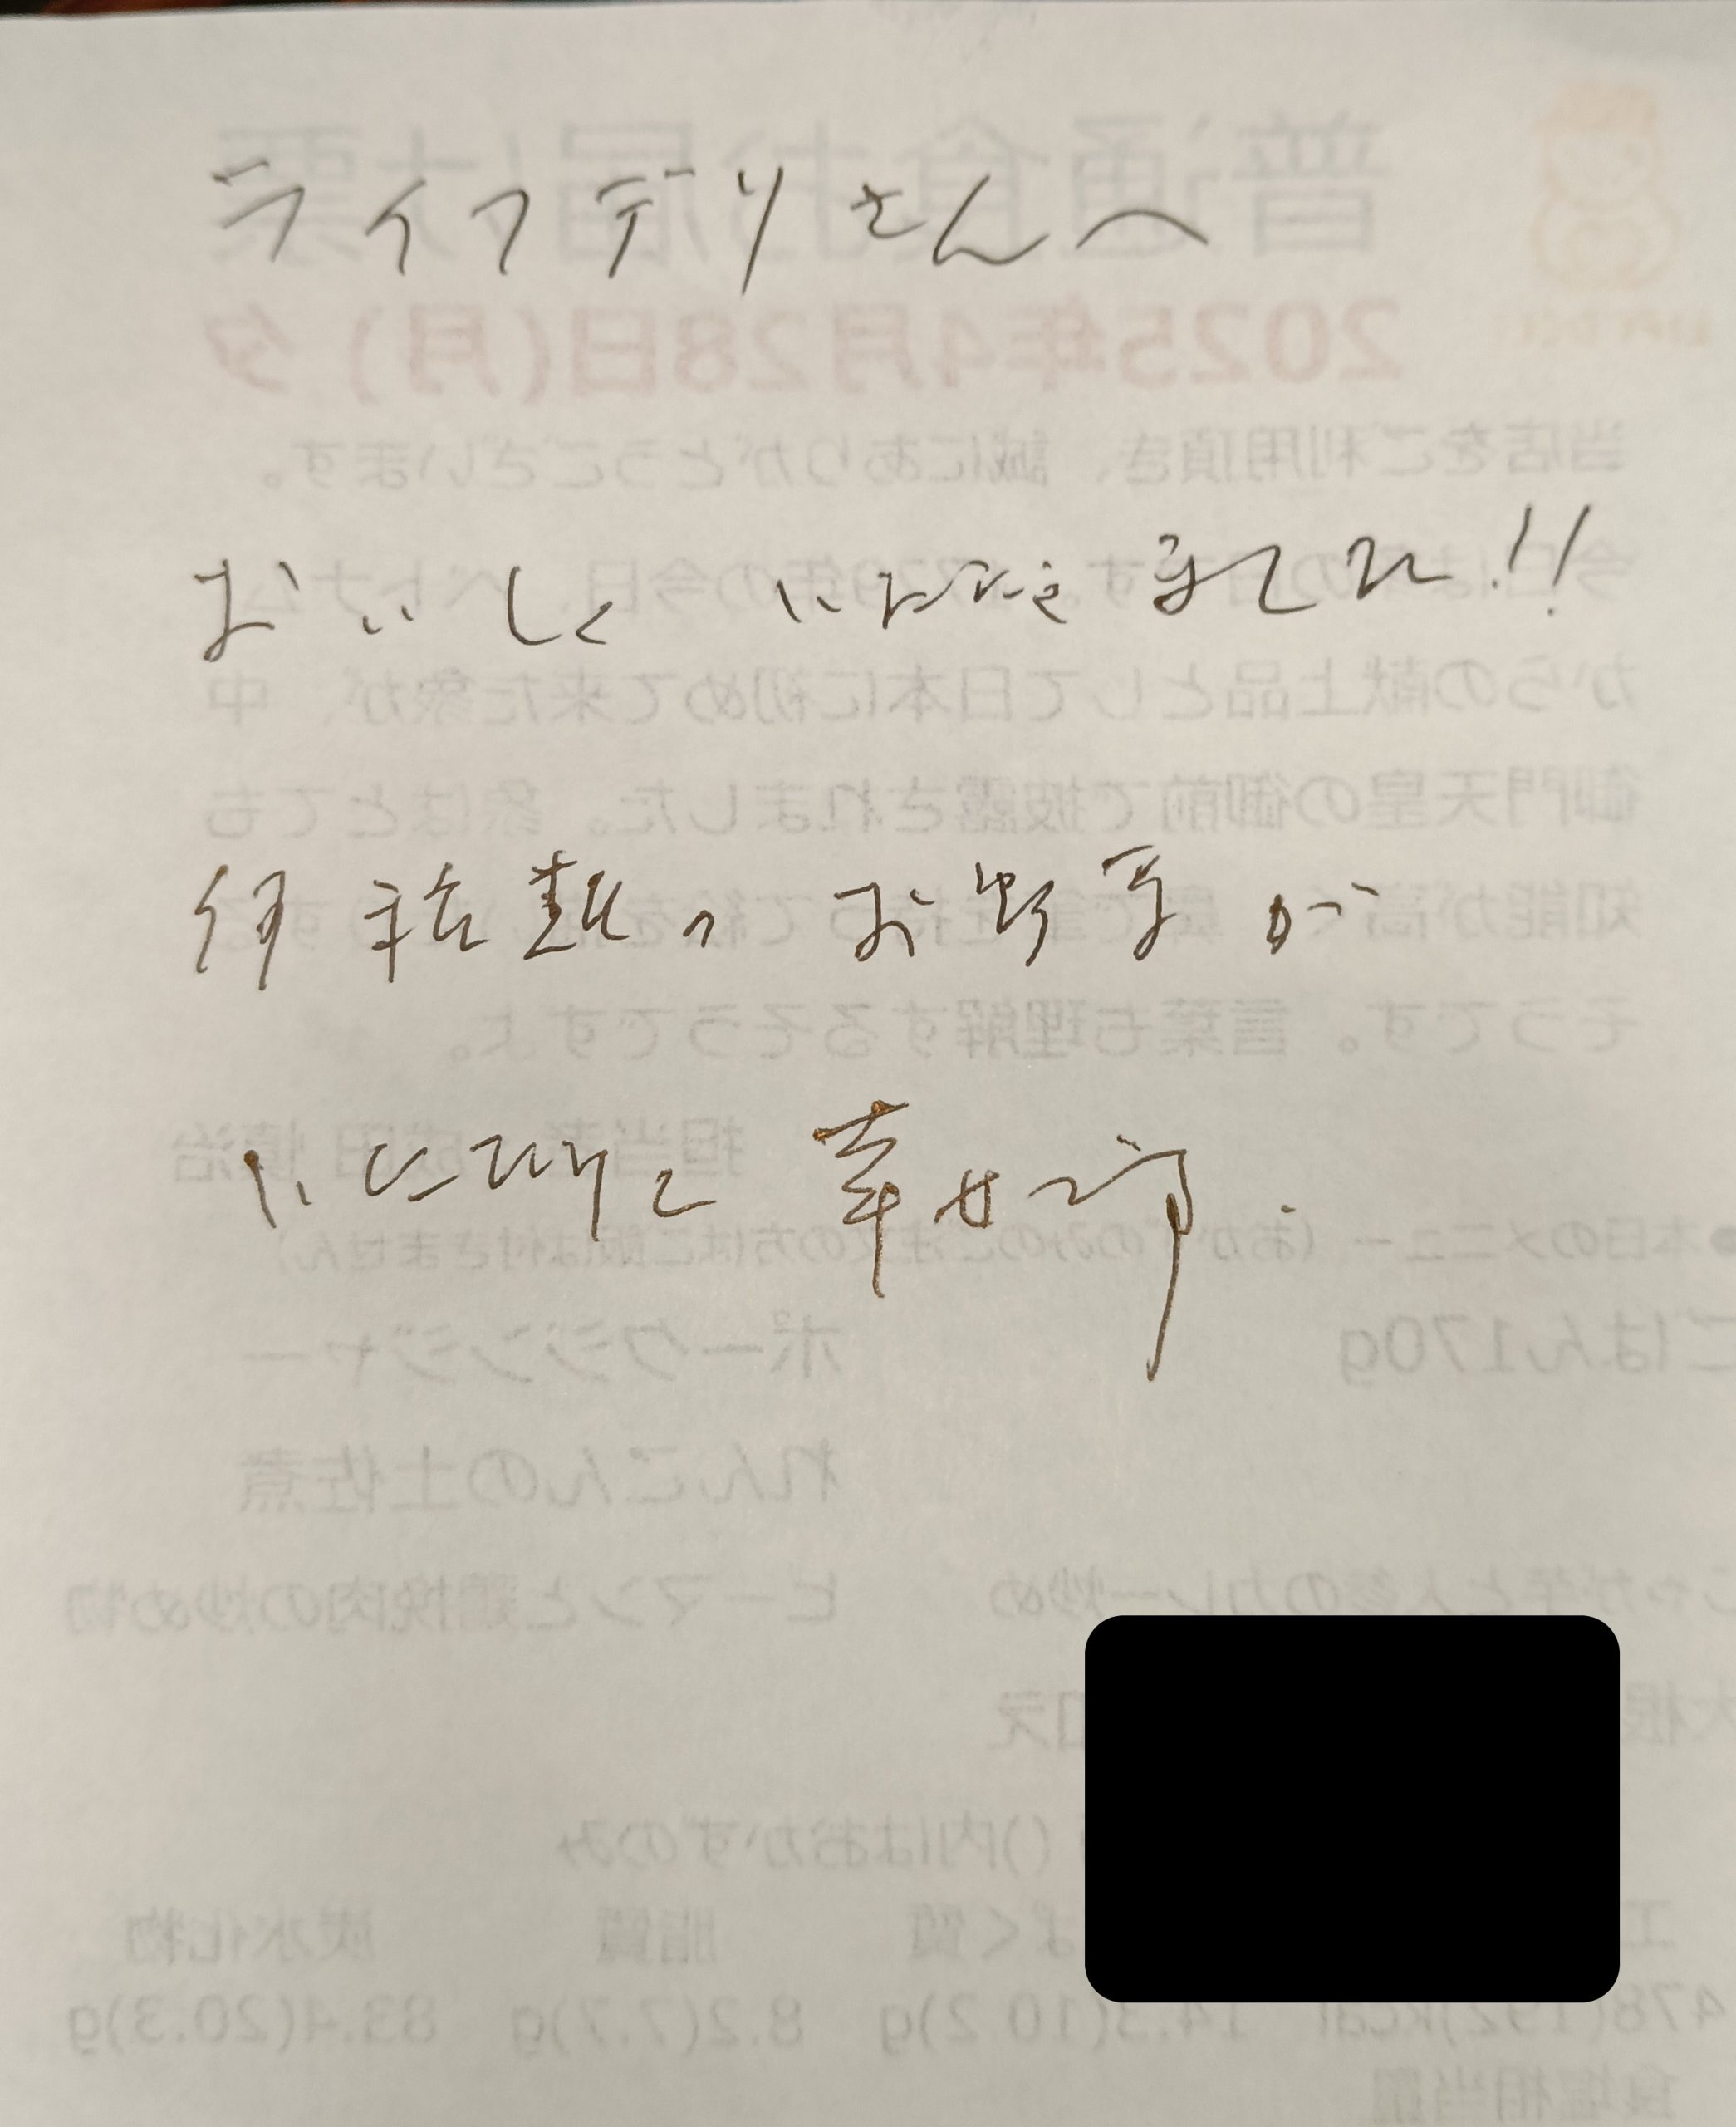 ライフデリさんへ
おいしくいただきました!!
何種類のお野菜が
いただけて幸せです.
普通食お届け票
2025年4月28日(月) 夕
当店をご利用頂き、誠にありがとうございます。
からの献上品として日本に初めて来た象が、中
御門天皇の御前で披露されました。象はとても
そうです。言葉も理解するそうですよ。
担当者
●本日のメニュー (おかずのみのご注文の方はご飯は付きません)
ごはん170g ポークジンジャー
れんこんの土佐煮
じゃが芋と人参のカレー炒め ピーマンと鶏挽肉の炒め物
大根 和え
()内はおかずのみ
脂質 炭水化物
478(192)kcal 14.3(10.2)g 8.2(7.7)g 83.4(20.3)g
食塩相当量